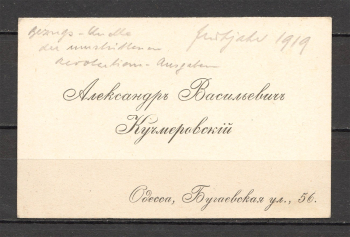 Bezugs-Quelle
der umstrittenen
Revolutions-Ausgaben
Frühjahr 1919
Александръ Васильевичъ
Кучмеровскій
Одесса, Бугаевская ул., 56.